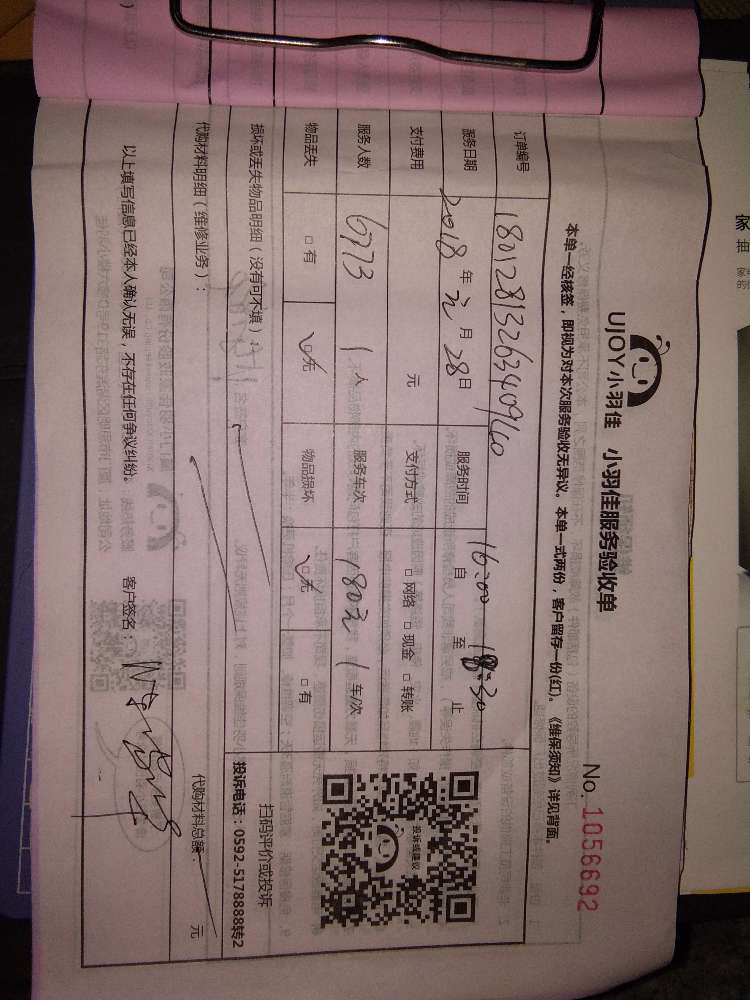 UJOY小羽佳 小羽佳服务验收单
No. 1056692
本单一经核签，即视为对本次服务验收无异议。本单一式两份，客户留存一份(红)。《维保须知》详见背面。
订单编号 18012813263409160
服务日期 2018 年 元 月 28 日 服务时间 自 16:00 至 18:30 止
支付费用 元 支付方式 □ 网络 □ 现金 □ 转账
服务人数 6773 1 人 服务车次 180元 1 车/次
物品丢失 □ 有 □ 无 物品损坏 □ 无 □ 有
损坏或丢失物品明细（没有可不填）：
投诉或建议
扫码评价或投诉
投诉电话：0592-5178888转2
代购材料明细（维修业务）：
代购材料总额： 元
以上填写信息已经本人确认无误，不存在任何争议纠纷。 客户签名：